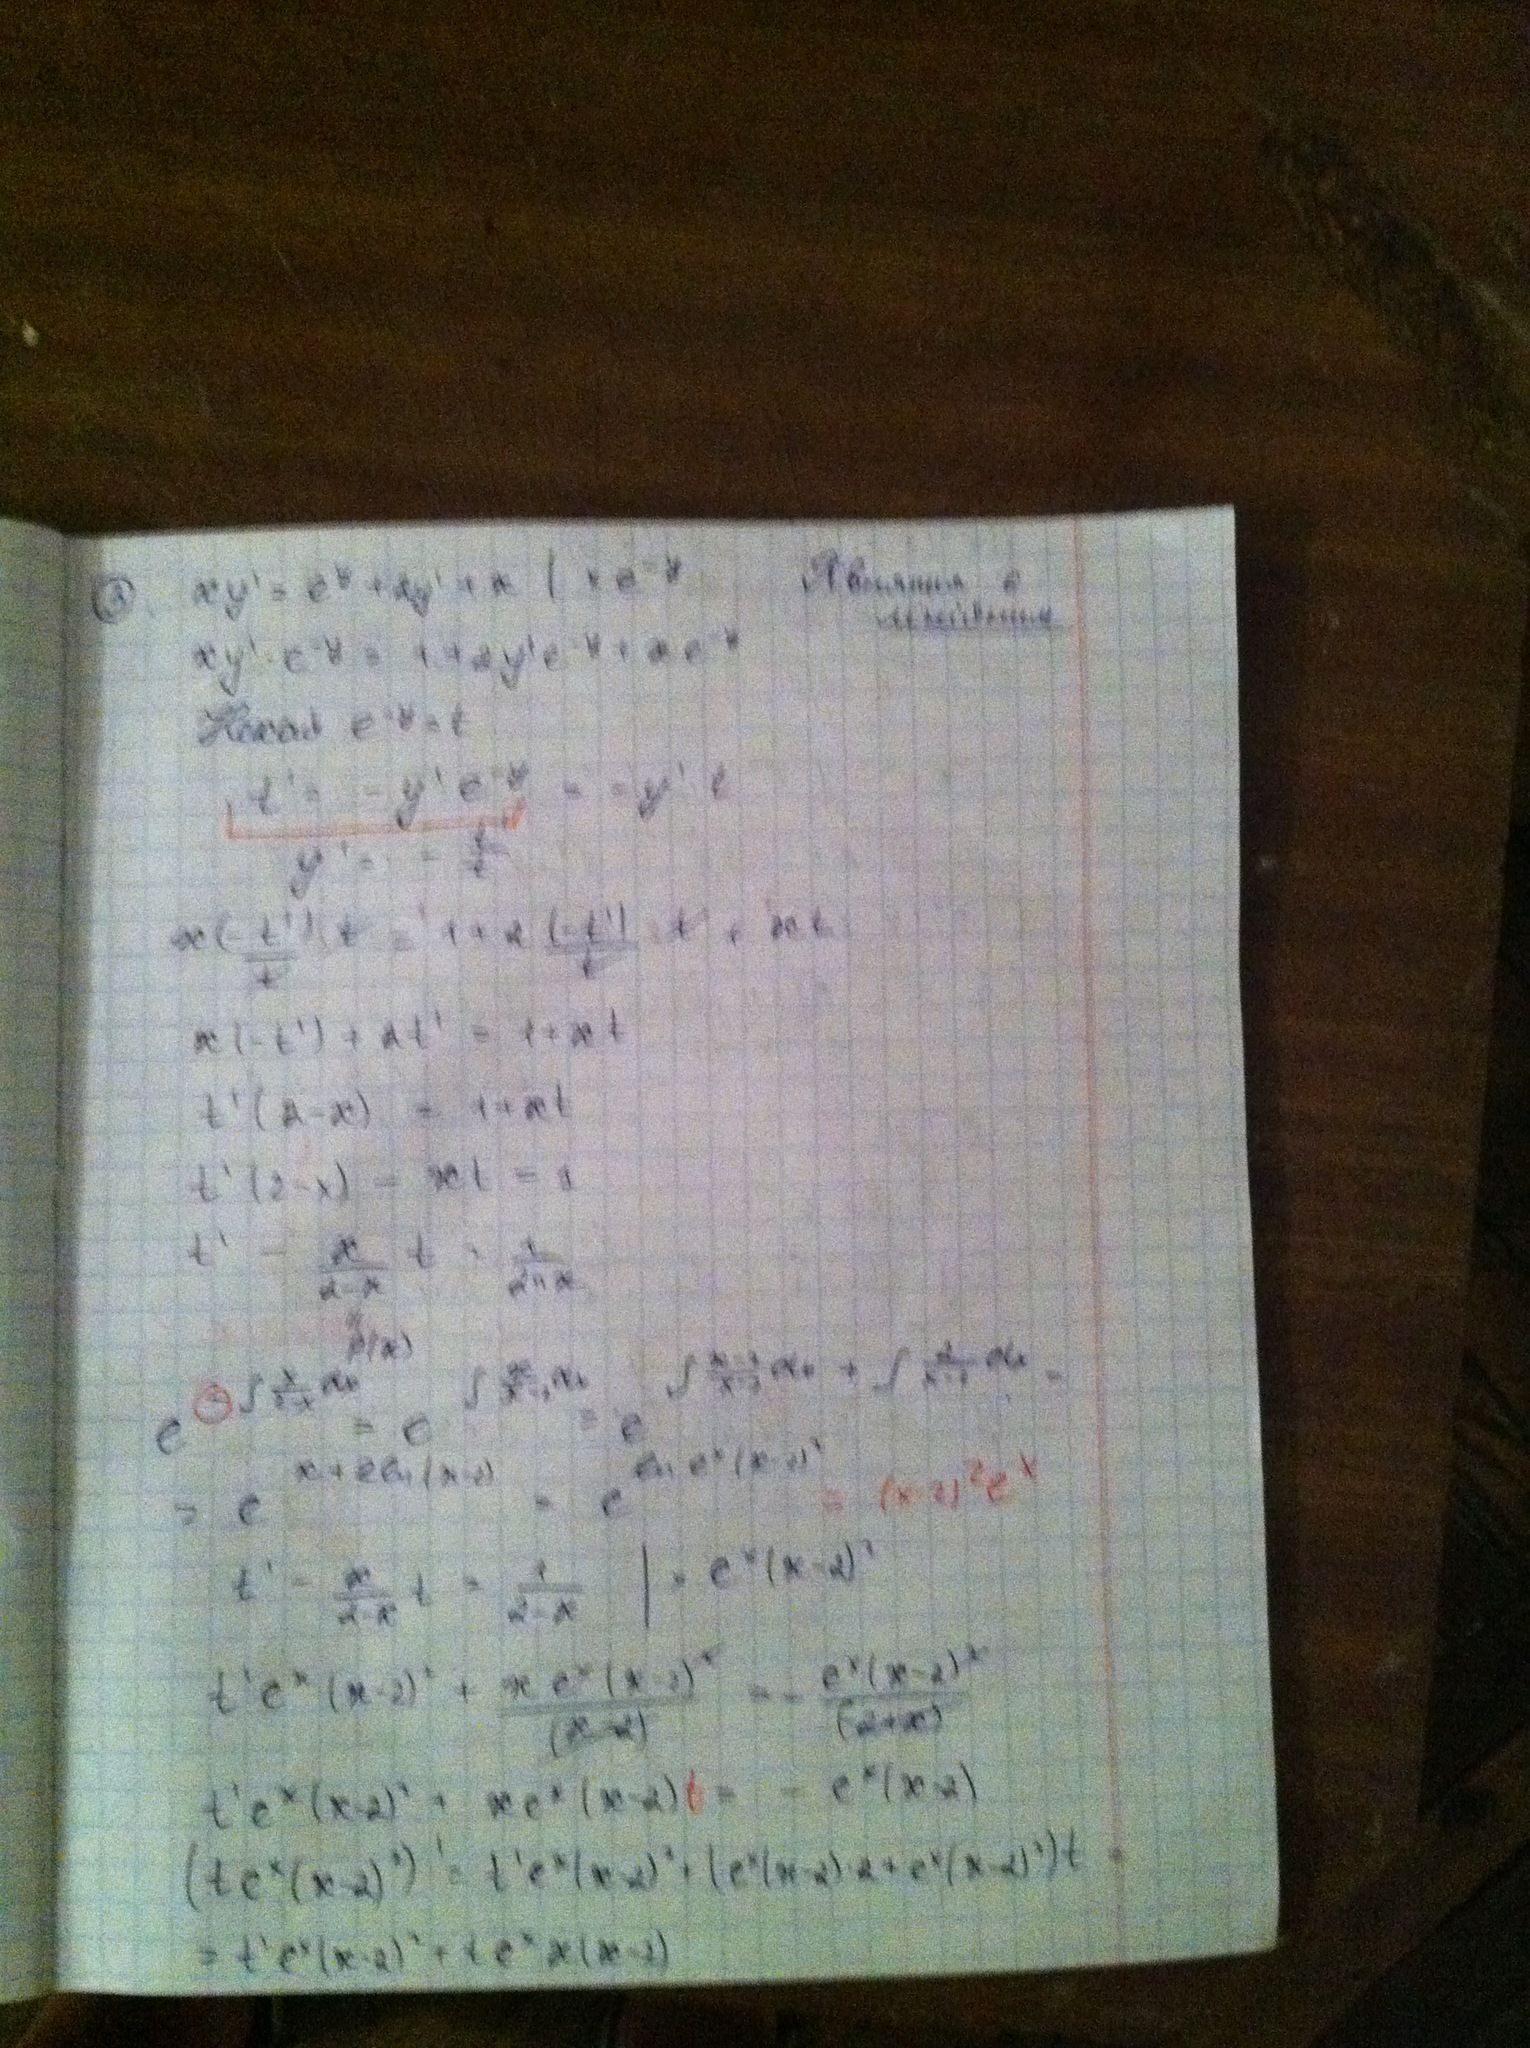 ③. xy' = e^y + 2y' + x | × e^-y
xy' · e^-y = 1 + 2y'e^-y + x e^-y
e^-y = t
t' = - y' e^-y = - y' t
y' = - t'/t
x(- t')/t · t = 1 + 2 (- t')/t · t + xt
x(-t') + 2t' = 1 + xt
t'(2 - x) = 1 + xt
t'(2 - x) - xt = 1
t' - x/(2-x) t = 1/(2-x)
p(x)
e^(-∫ x/(2-x) dx) = e^(∫ x/(x-2) dx) = e^(∫ (x-2)/(x-2) dx + ∫ 2/(x-2) dx) =
= e^(x + 2ln(x-2)) = e^(ln e^x (x-2)²) = (x-2)² e^x
t' - x/(2-x) t = 1/(2-x) | × e^x (x-2)²
t'e^x (x-2)² + x e^x (x-2)²/(x-2) = - e^x (x-2)²/(2+x)
t'e^x (x-2)² + x e^x (x-2)t = - e^x (x-2)
(t e^x (x-2)²)' = t'e^x (x-2)² + (e^x (x-2)·2 + e^x (x-2)²)t =
= t'e^x (x-2)² + t e^x x(x-2)